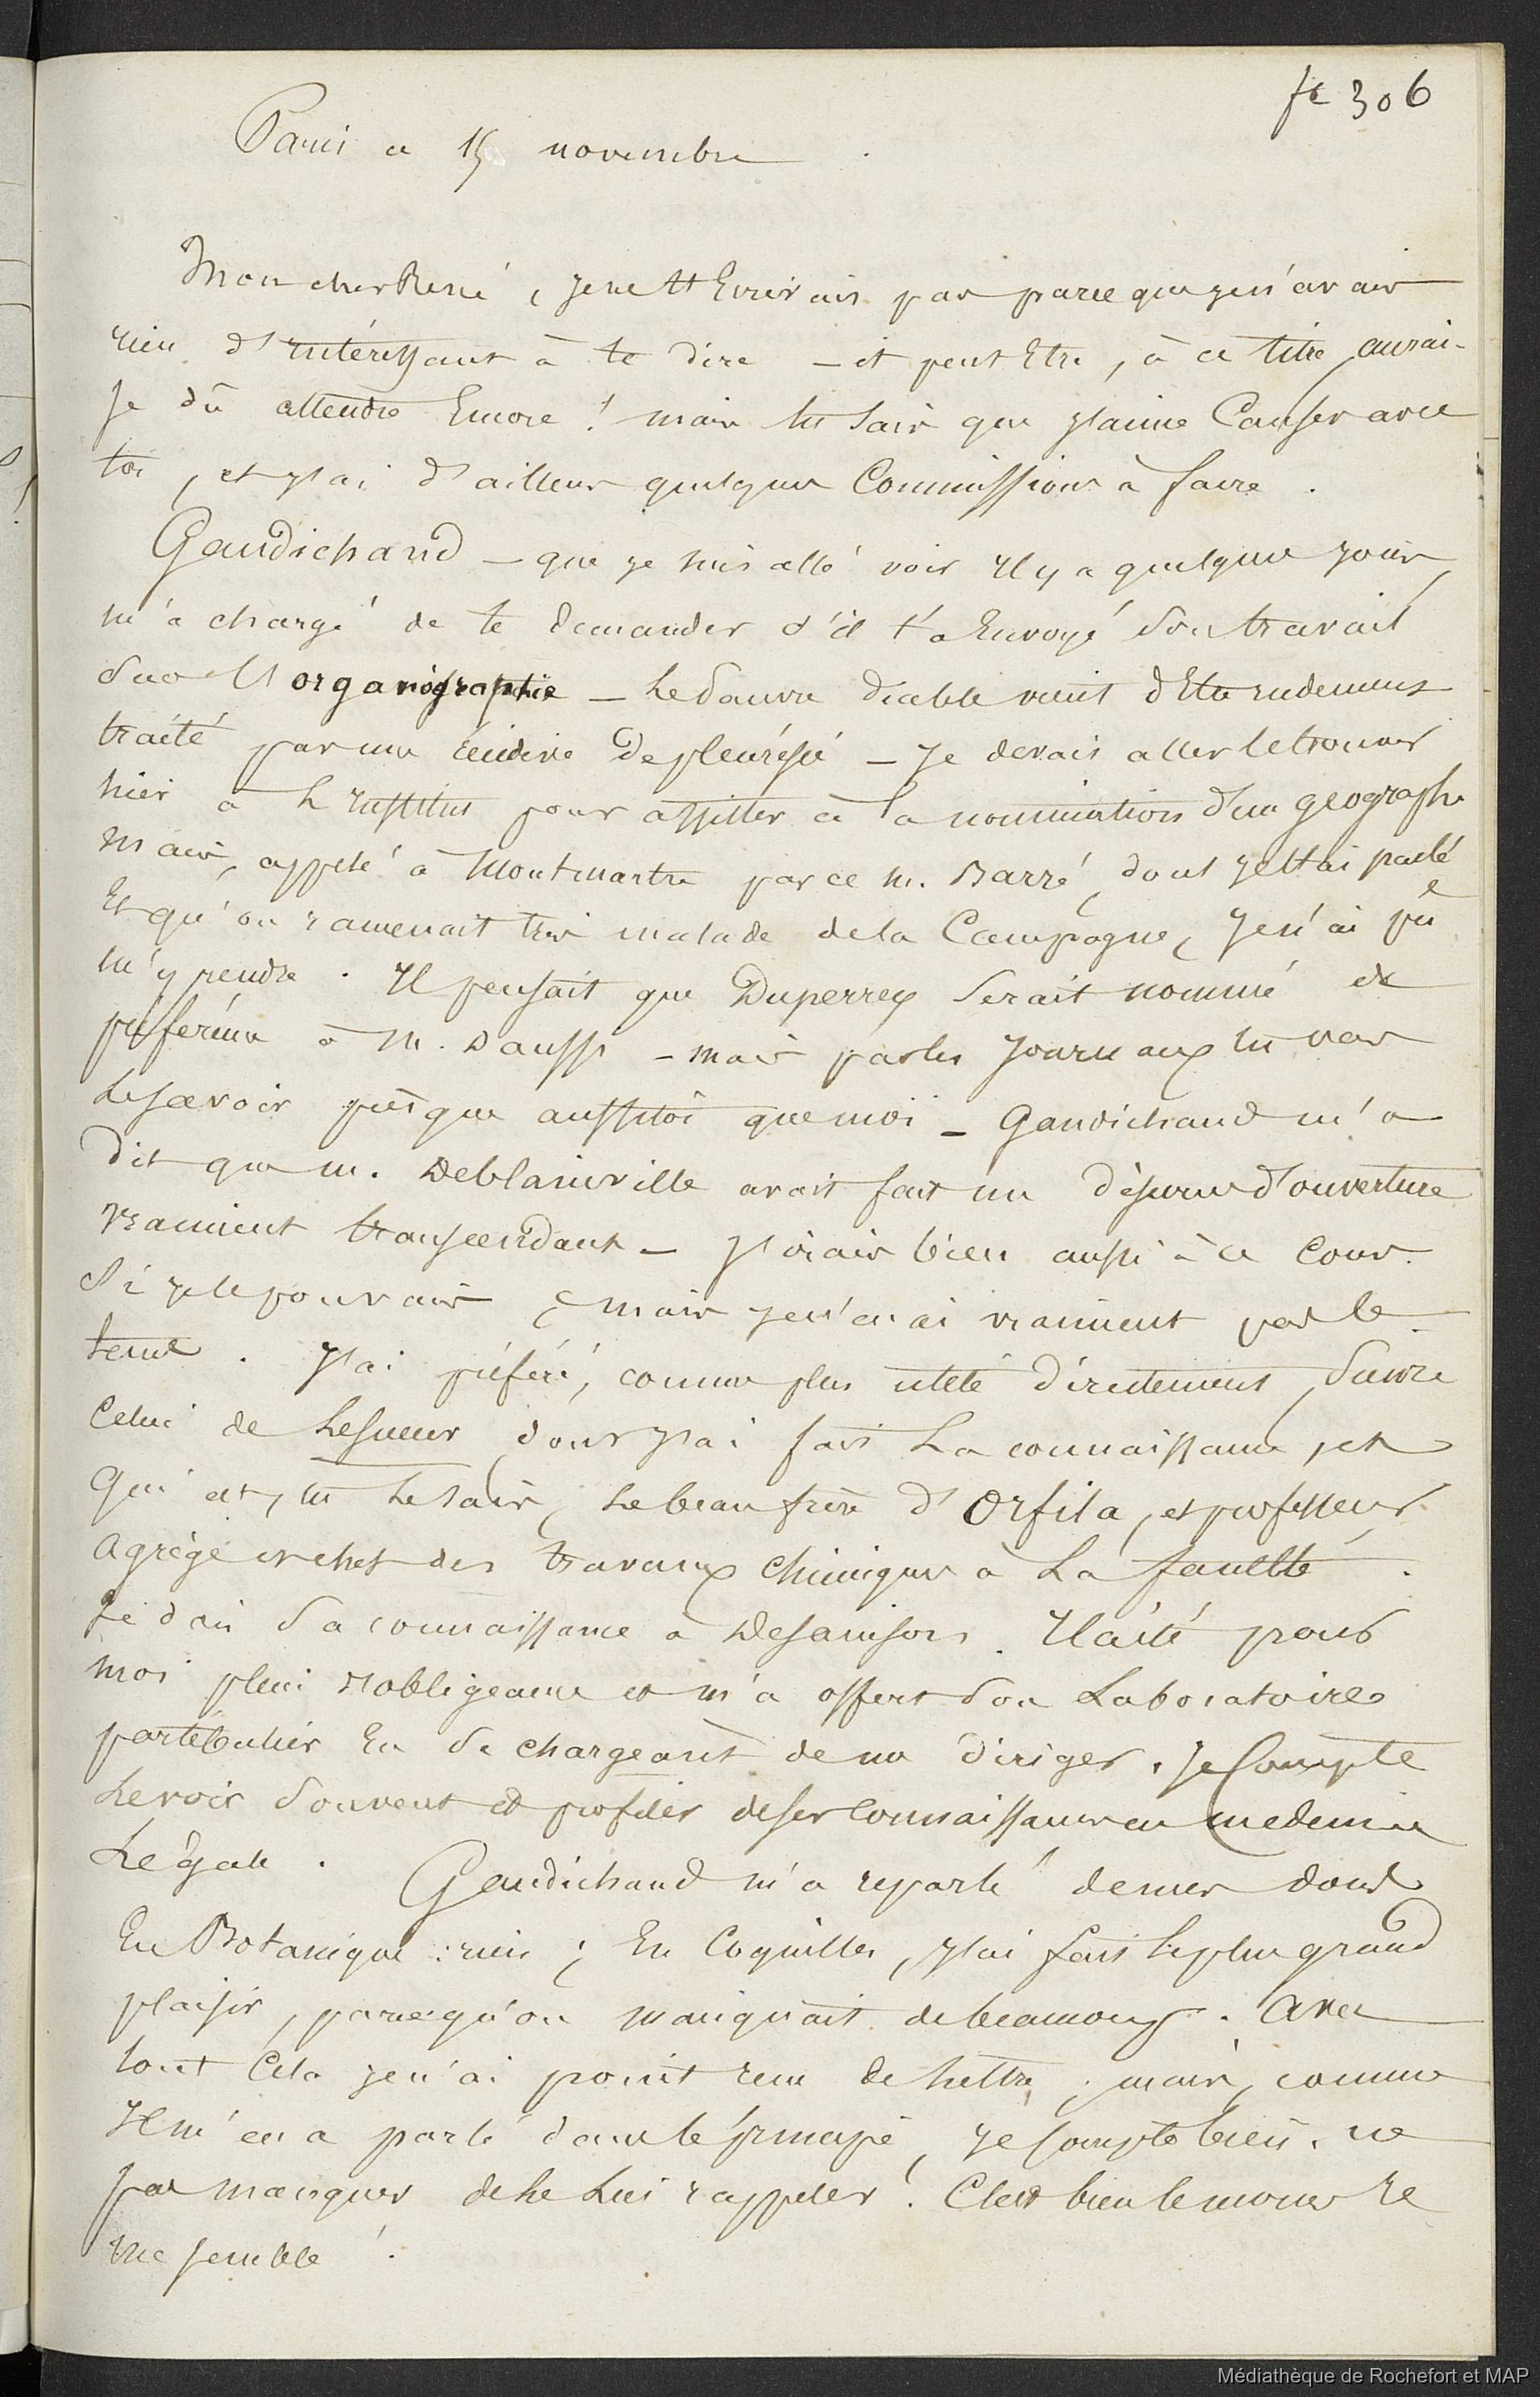 fe 306
Paris ce 15 novembre
Mon cher René, je ne t'écrivais pas parce que je n'avais
rien d'intéressant à te dire – et peut être, à ce titre, aurai-
je dû attendre encore ! mais tu sais que j'aime causer avec
toi, et j'ai d'ailleurs quelques commissions à faire.
Gaudichaud – que je suis allé voir il y a quelques jours,
m'a chargé de te demander s'il t'a envoyé son travail
sur l'organographie – le pauvre diable vient d'être rudement
traité par une récidive de pleurésie – je devais aller le trouver
hier à l'institut pour assister à la nomination d'un géographe
mais, appelé à Montmartre par ce M. Barré, dont je t'ai parlé
et qu'on ramenait très malade de la campagne, je n'ai pu
m'y rendre. Il pensait que Duperrey serait nommé de
préférence à M. Daussy – mais par les journaux tu vas
le savoir presque aussitôt que moi – Gaudichaud m'a
dit que M. Deblainville avait fait un discours d'ouverture
vraiment transcendant – j'irais bien aussi à ce cours
si je le pouvais, mais je n'en ai vraiment pas le
tems. J'ai préféré, comme plus utile directement, suivre
celui de Lesueur, dont j'ai fait la connaissance, et
qui est, tu le sais, le beau frère d'Orfila, et professeur
agrégé et chef des travaux chimiques à la faculté.
Je dois sa connaissance à . Il a été pour
moi plein d'obligeance et m'a offert son laboratoire
particulier en se chargeant de me diriger. Je compte
le voir souvent et profiter de ses connaissances en medecine
légale. Gaudichaud m'a reparlé de mes dons
en Botanique : rien ; en coquilles, j'ai fait le plus grand
plaisir, parce qu'on manquait de beaucoup. Avec
tout cela je n'ai point reçu de lettre ; mais, comme
il m'en a parlé dans le principe, je compte bien ne
pas manquer de le lui rappeler ! C'est bien le moins ce
me semble !
Médiathèque de Rochefort et MAP